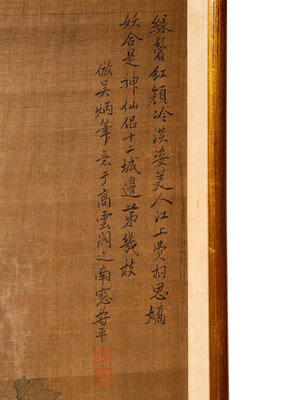 綠鬢紅顏冷淡姿美人江上費相思嬌
妖合是神仙侶十二城邊第幾枝
倣吳炳筆意于高雲閣之南窓壽平